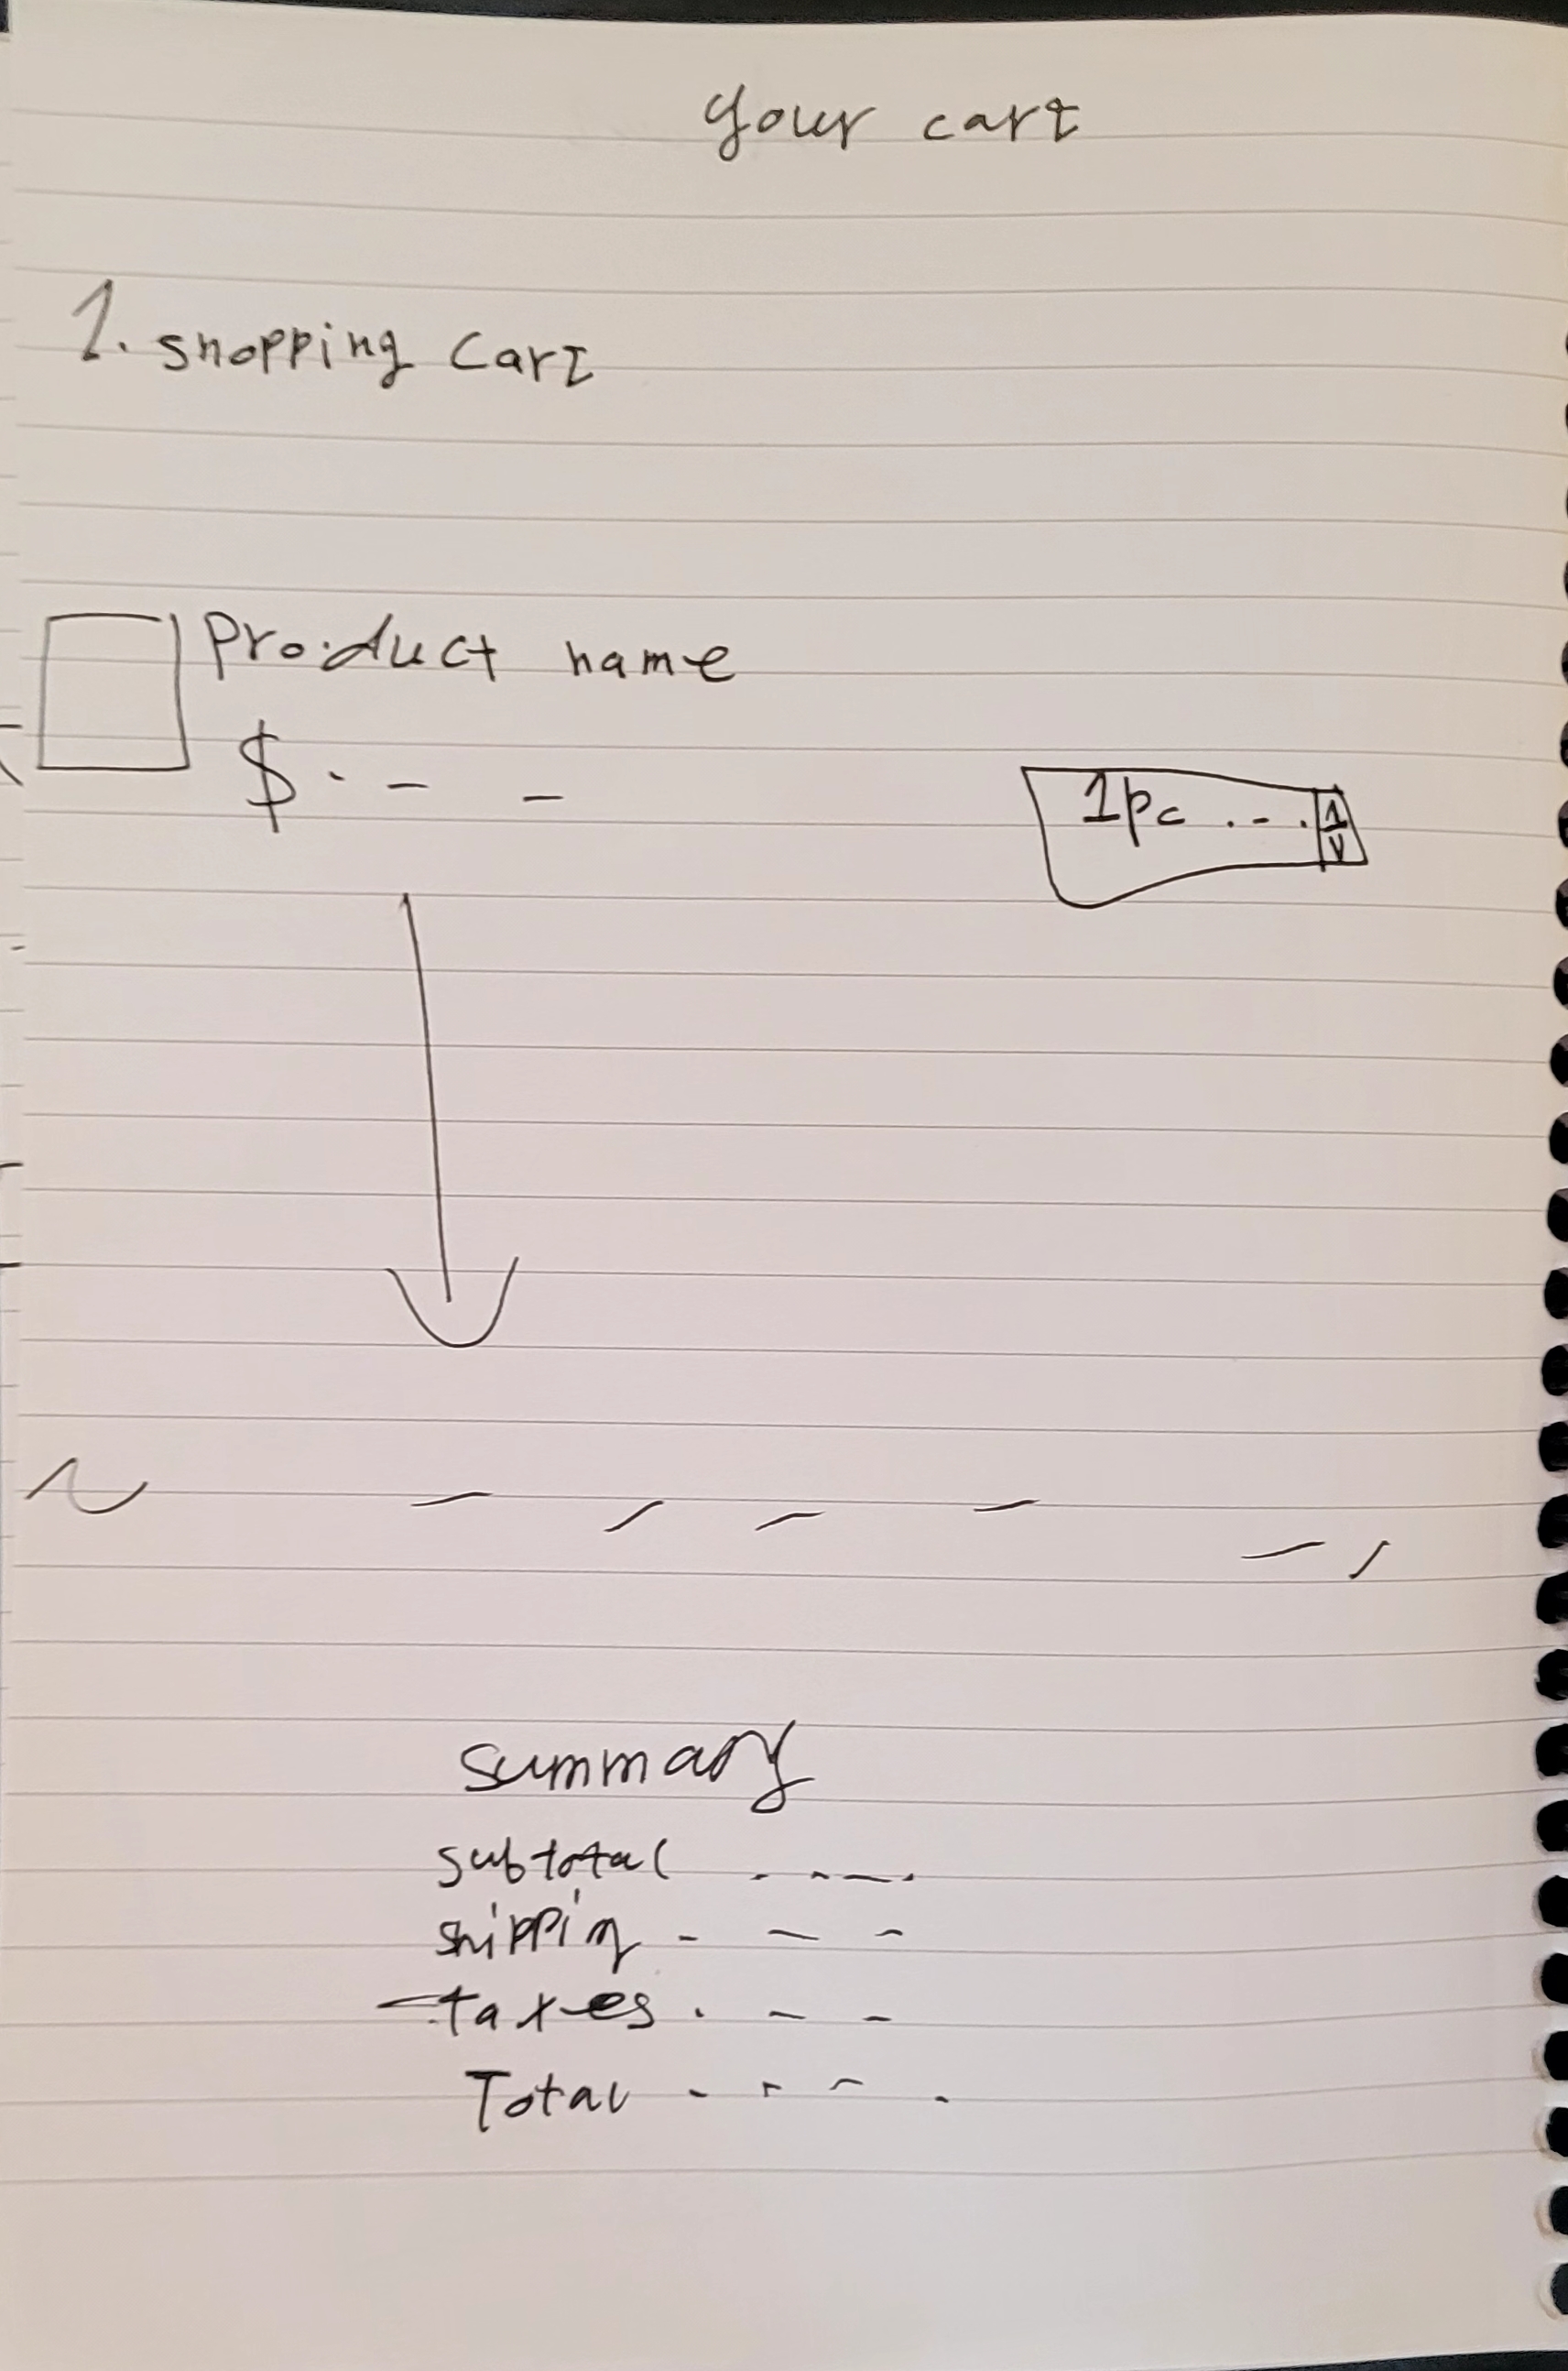 your cart
1. shopping cart
Product name
$
1pc
summary
subtotal
shipping
taxes
Total